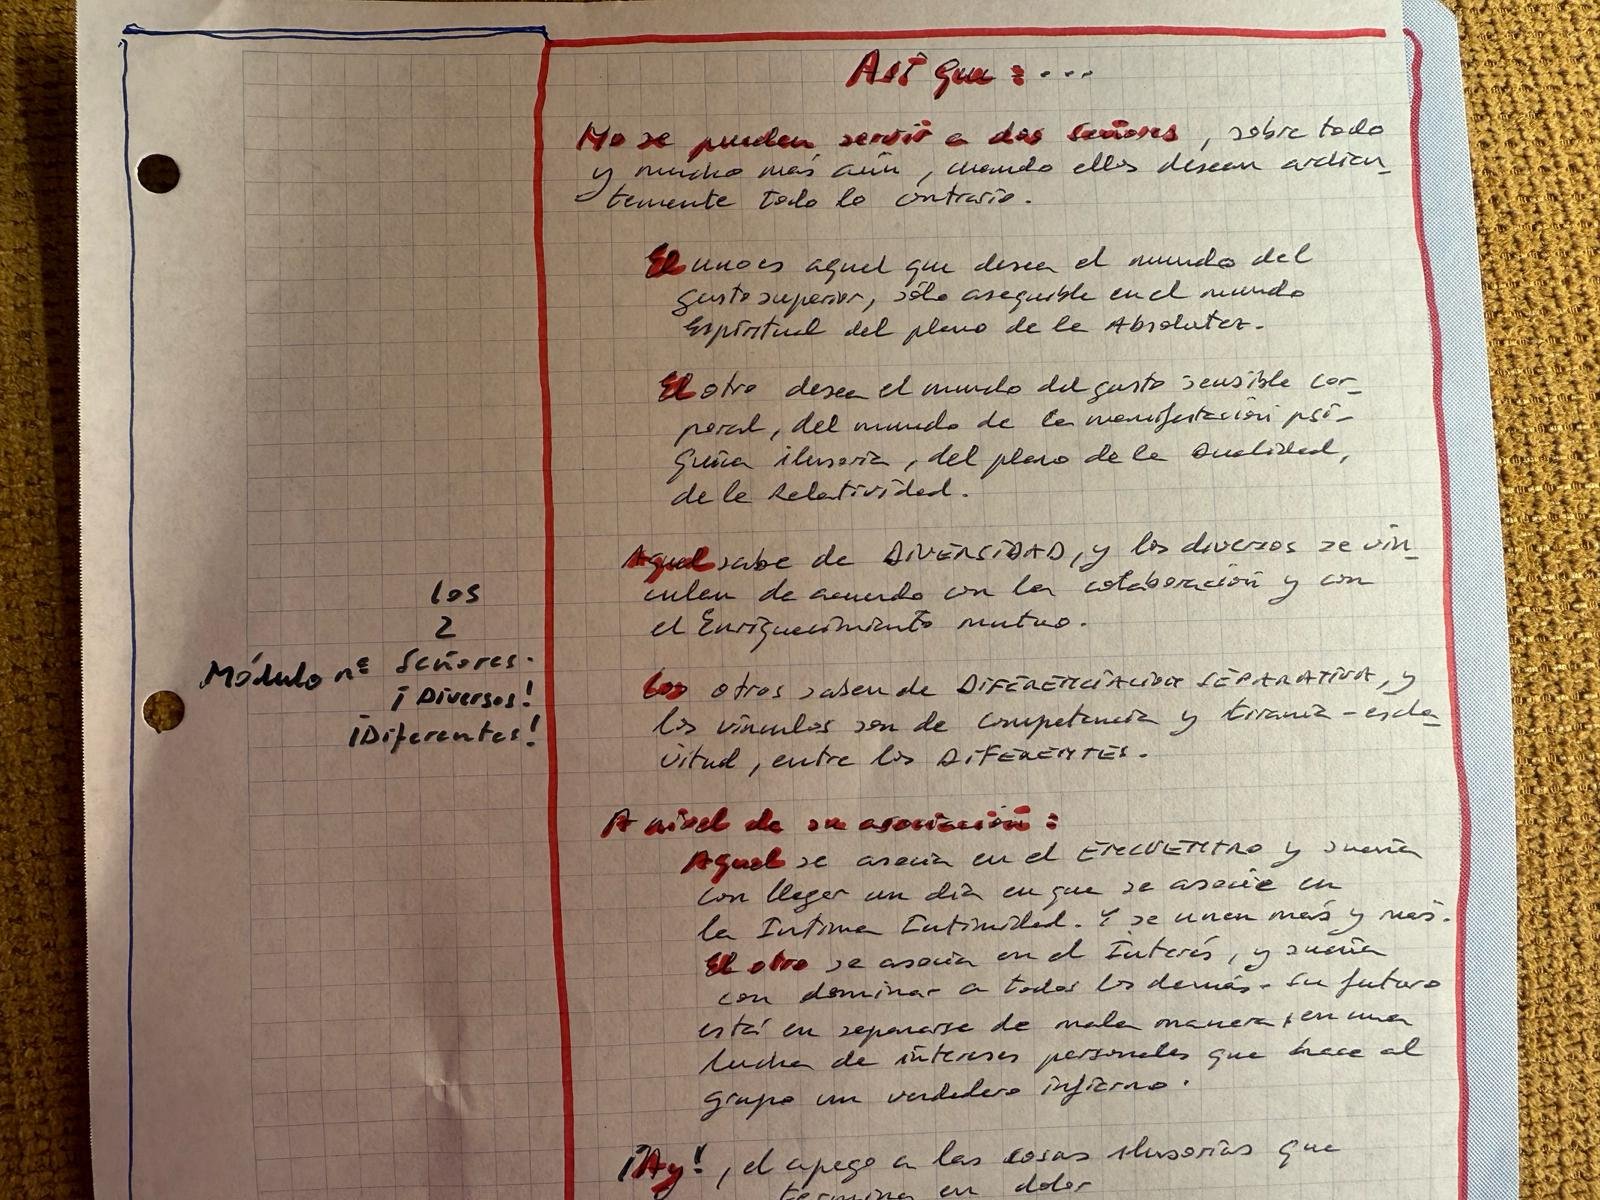 Así que : . . .
No se pueden servir a dos Señores, sobre todo
y mucho más aún, cuando ellos desean ardien_
temente todo lo contrario.
El uno es aquel que desea el mundo del
gusto superior, sólo asequible en el mundo
Espiritual del plano de la Absolutez.
El otro desea el mundo del gusto sensible cor_
poral, del mundo de la manifestación psí-
quica ilusoria, del plano de la Dualidad,
de la Relatividad.
Aquel sabe de DIVERSIDAD, y los diversos se vin_
culan de acuerdo con la colaboración y con
el Enriquecimiento mutuo.
Los otros saben de DIFERENCIACIÓN SEPARATIVA, y
los vínculos son de competencia y tiranía-escla_
vitud, entre los DIFERENTES.
A nivel de su asociación :
Aquel se asocia en el ENCUENTRO y sueña
con llegar un día en que se asocie en
la Íntima Intimidad. Y se unen más y más.
El otro se asocia en el Interés, y sueña
con dominar a todos los demás. Su futuro
está en separarse de mala manera, en una
lucha de intereses personales que hace al
grupo un verdadero infierno.
¡Ay!, el apego a las cosas ilusorias que
termina en dolor
los
2
Módulo nº Señores.
¡Diversos!
¡Diferentes!